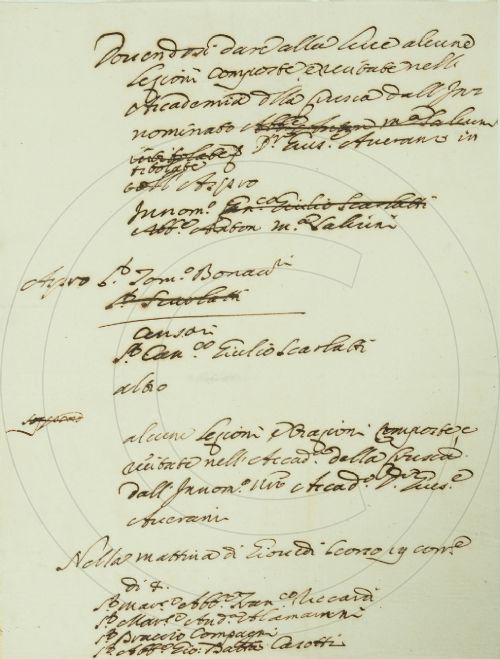 Dovendosi dare alla luce alcune
lezioni composte e recitate nell
Accademia della Crusca dall' Inn
nominato Abb.e Anton M.a Salvini
Dr. Gius.e Averani in
titolate
Aspro
Innom.o Can.co Giulio Scarlatti
Abb.e Anton M.a Salvini
Aspro Sr. Tom.o Bonav.ri
Sr. Scarlatti
Censori
Sr. Can.co Giulio Scarlatti
altro
alcune lezioni e orazioni composte, e
recitate nell' Accad.a della Crusca
dall' Innom.o Accad.o Dr. Gius.e
Averani
Nella mattina di Giovedì scorso 19 corr.e
di
Sr. Mar.e Abb.e Fran.co Riccardi
Sr. Mar.e And.a Alamanni
Sr. Braccio Compagni
Sr. Abb.e Gio: Batta Casotti